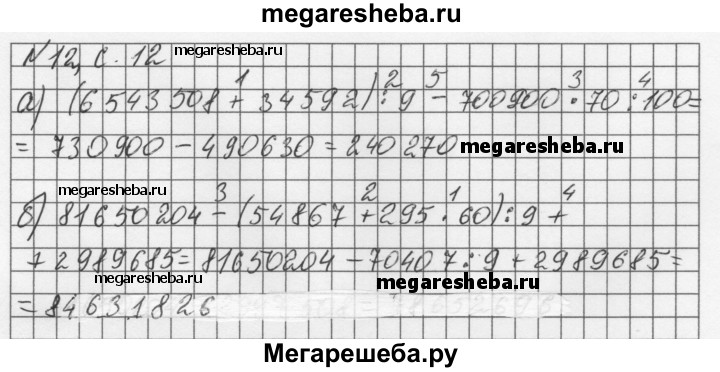 megaresheba.ru
№12, с. 12 megaresheba.ru
1 2 5 3 4
а) (6543508 + 34592) : 9 - 700900 · 70 : 100 =
= 730900 - 490630 = 240270 megaresheba.ru
megaresheba.ru
3 2 1 4
б) 81650204 - (54867 + 295 · 60) : 9 +
+ 2989685 = 81650204 - 70407 : 9 + 2989685 =
megaresheba.ru megaresheba.ru
= 84631826
Мегарешеба.ру